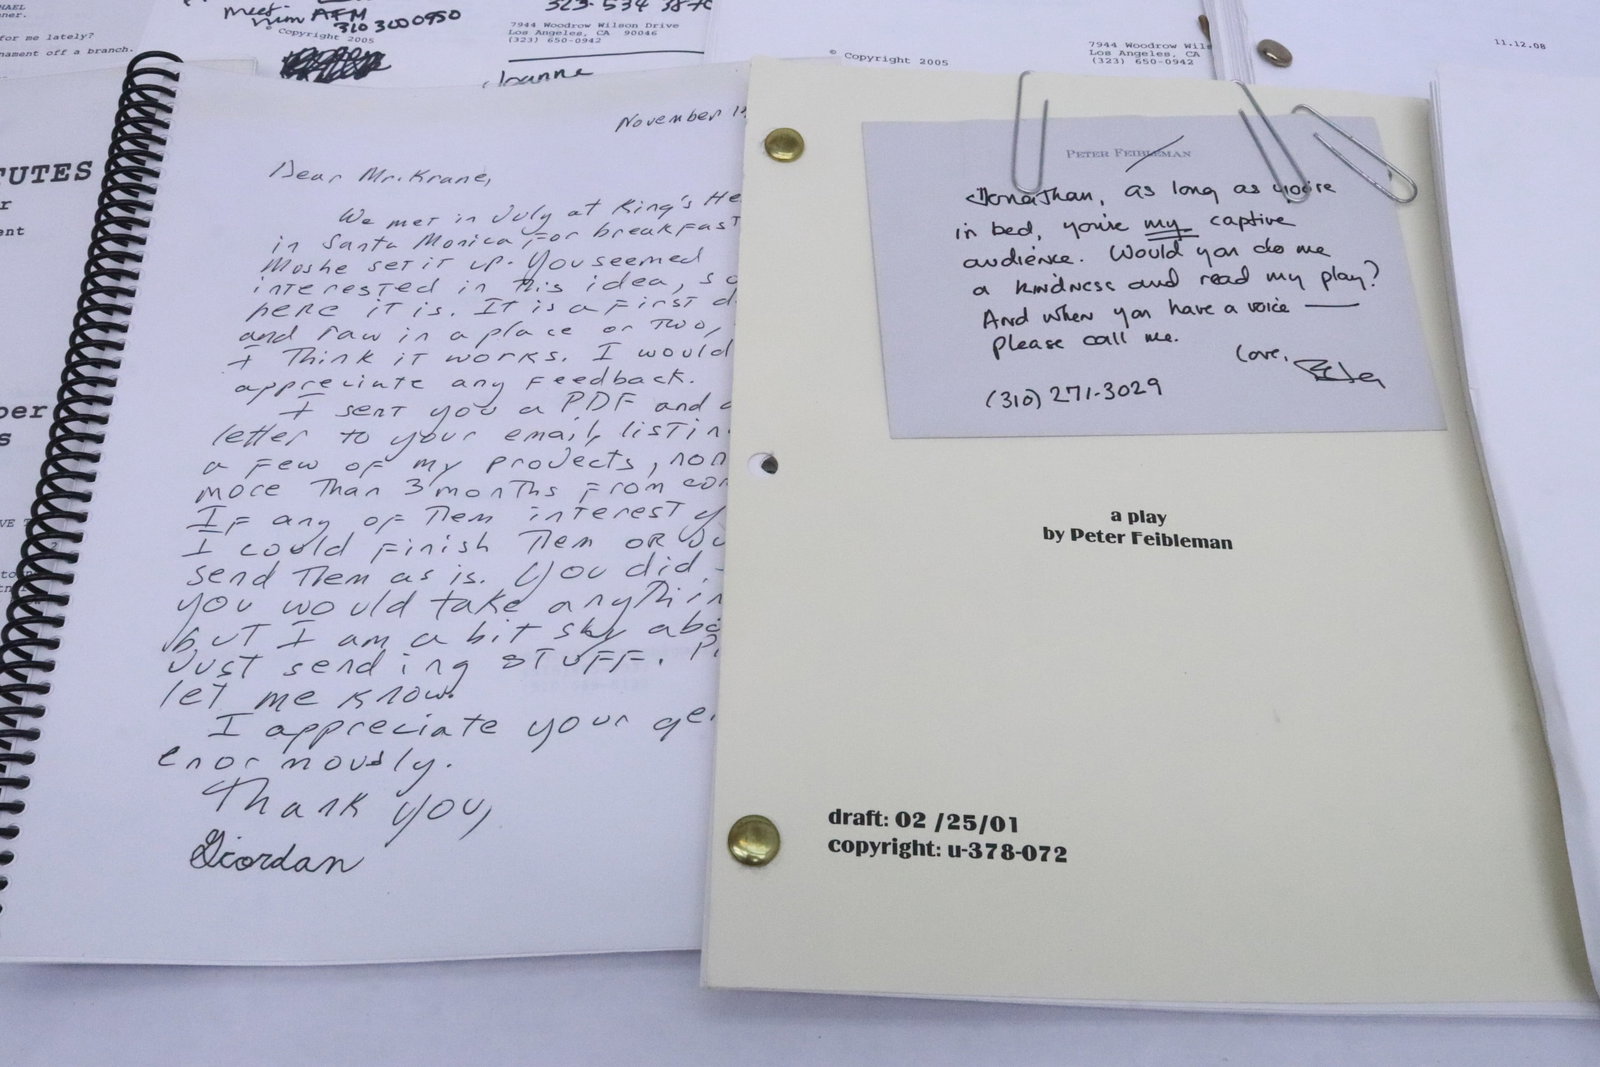 for me lately?
nament off a branch.
meet.
him AFM
310 300 0950
© Copyright 2005
7944 Woodrow Wilson Drive
Los Angeles, CA 90046
(323) 650-0942
Joanne
© Copyright 2005
7944 Woodrow Wils
Los Angeles, CA
(323) 650-0942
11.12.08
TUTES
November
Dear Mr. Krane,
We met in July at King's He
in Santa Monica for breakfast
Moshe set it up. You seemed
interested in this idea, so
here it is. It is a first d
and raw in a place or two,
I think it works. I would
appreciate any feedback.
I sent you a PDF and a
letter to your email, listin
a few of my projects, non
more than 3 months from com
If any of them interest y
I could finish them or ju
send them as is. You did,
you would take anythin
but I am a bit shy abo
just sending stuff. Pl
let me know.
I appreciate your ge
enormously.
Thank you,
Giordan
PETER FEIBLEMAN
Jonathan, as long as you're
in bed, you're my captive
audience. Would you do me
a kindness and read my play?
And when you have a voice —
please call me.
Love,
Peter
(310) 271-3029
a play
by Peter Feibleman
draft: 02 /25/01
copyright: u-378-072